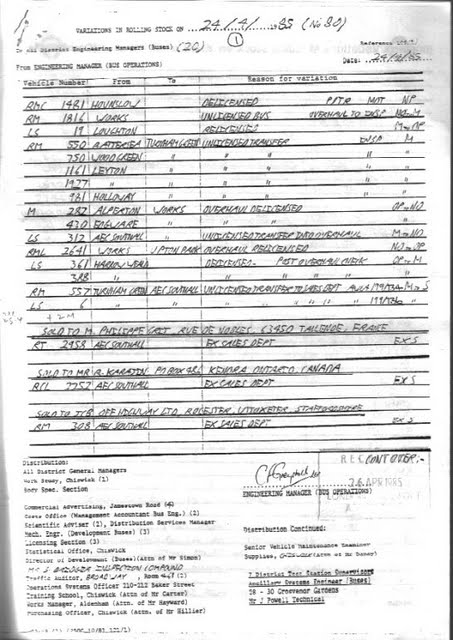 VARIATIONS IN ROLLING STOCK ON 24/4/85 (No 80)
To All District Engineering Managers (Buses) (20) (1) Reference
From ENGINEERING MANAGER (BUS OPERATIONS) Date: 24/4/85
Vehicle Number From To Reason for variation
RMC 1481 HOUNSLOW DELICENSED PSTR MOT NP
RM 1816 WORKS UNLICENSED BUS OVERHAUL TO INSP
LS 19 LOUGHTON DELICENSED
RM 550 BATTERSEA TURNHAM GREEN UNLICENSED TRANSFER ENSP M
750 WOOD GREEN " " " " "
1161 LEYTON " " " " "
1977 " " " " " "
961 HOLLOWAY " " " " "
M 282 ALPERTON WORKS OVERHAUL DELICENSED OP-NO
430 EDGWARE " " " "
LS 312 AEC SOUTHALL " UNLICENSED TRANSFER INTO OVERHAUL M-NO
RML 2641 WORKS UPTON PARK OVERHAUL RELICENSED NO-OP
LS 361 HARROW WEALD DELICENSED- POST OVERHAUL CHECK OP-M
388 " " " " "
RM 557 TURNHAM GREEN AEC SOUTHALL UNLICENSED TRANSFER TO SALES DEPT M-S
LS 6 " " " " " "
+ 2 M
SOLD TO M. PHILIPPE RUE DE NOBLES, 63450 TALLENDE, FRANCE
RT 2958 AEC SOUTHALL EX SALES DEPT EX S
SOLD TO MR R. PO BOX KENORA ONTARIO, CANADA
RCL AEC SOUTHALL EX SALES DEPT EX S
SOLD TO JCB OFF HIGHWAY LTD, ROCESTER, UTTOXETER, STAFFORDSHIRE
RM 308 AEC SOUTHALL EX SALES DEPT EX S
CONT OVER:-
Distribution: REC
All District General Managers
Work Study, Chiswick (1) 26 APR 1985
Body Spec. Section ENGINEERING MANAGER (BUS OPERATIONS)
Commercial Advertising, Jamestown Road (4)
Costs Office (Management Accountant Bus Eng.) (2)
Scientific Adviser (1), Distribution Services Manager Distribution Continued:
Mech. Engr. (Development Buses) (3)
Licensing Section (3) Senior Vehicle Maintenance Examiner
Statistical Office, Chiswick Supplies,
Director of Development (Buses)(Attn of Mr Simon)
INSPECTION COMPOUND
Traffic Auditor, BROADWAY - Room 7 District Test Station Supervisors
Operations Systems Officer 210-212 Baker Street Auxiliary Systems Engineer (Buses)
Training School, Chiswick (Attn of Mr Carter) 28 - 30 Grosvenor Gardens
Works Manager, Aldenham (Attn. of Mr Hayward) Mr J Powell Technical
Purchasing Officer, Chiswick (Attn of Mr Hillier)